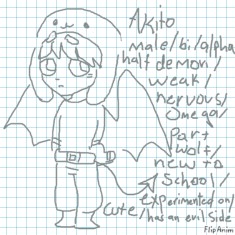 Akito
male/bi/alpha
half demon/
weak/
nervous/
omega/
part
wolf/
new to
school/
experimented on/
cute/ /has an evil side
FlipAnim